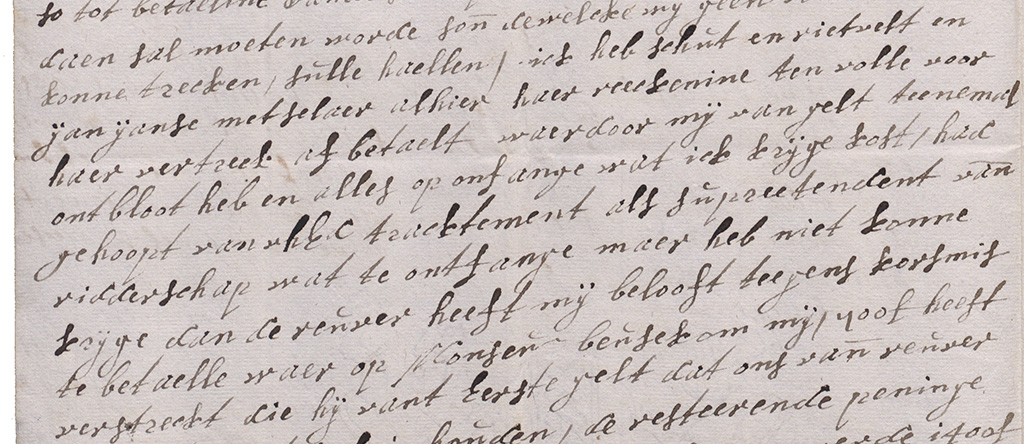 so tot betaeline
daen sal moeten worde son dewelcke my geen
konne trecken, sulle haellen / ick heb schut en rietvelt en
yan yanse metselaer alhier haer reeckenine ten volle voor
haer vertreck af betaelt waerdoor mij van gelt teenemal
ontbloot heb en alles op onfange wat ick krijge kost / had
gehoopt van tracktement als supreetendent van
ridderschap wat te ontfange maer heb niet konne
krijge dan de reuver heeft mij belooft teegens korsmis
te betaelle waer op Monseur beusekom mij / 400f heeft
verstreckt die hij vant eerste gelt dat ons van reuver
houden, de resteerende peninge